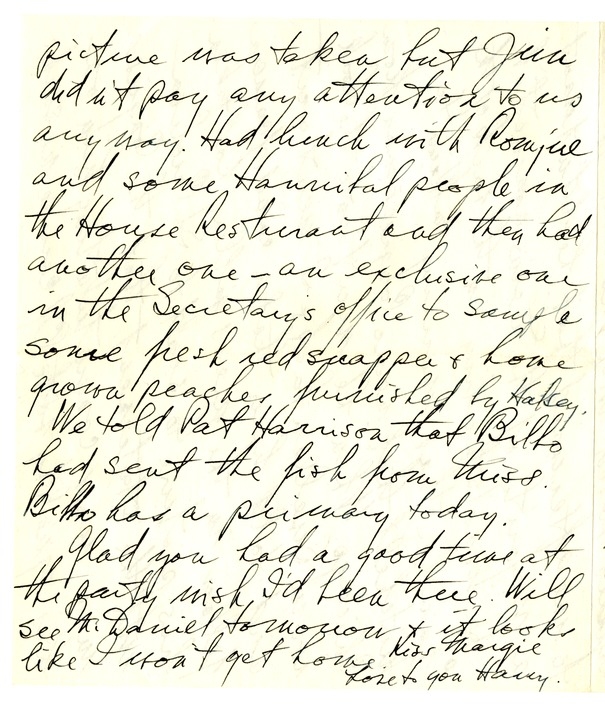 picture was taken but Jim
didn't pay any attention to us
anyway. Had lunch with Romjue
and some Hannibal people in
the House Resturant and then had
another one – an exclusive one
in the Secretary's office to sample
some fresh red snapper & home
grown peaches furnished by Halsey.
We told Pat Harrison that Bilbo
had sent the fish from Miss.
Bilbo has a primary today.
Glad you had a good time at
the party wish I'd been there. Will
see McDaniel tomorrow & it looks
like I won't get home. Kiss Margie
Love to you Harry.